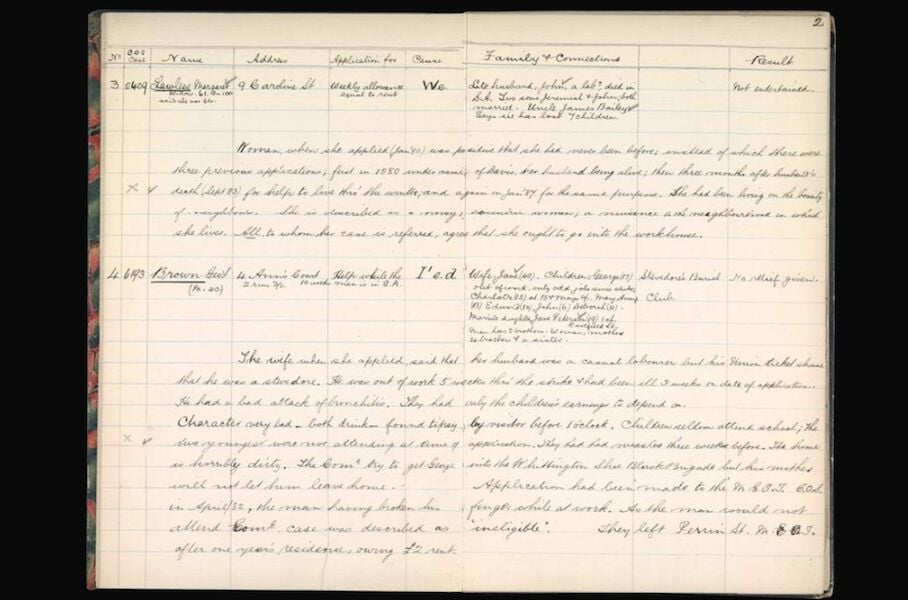 2
No C.O.S Case Name Address Application for Cause Family & Connections Result
3 0409 Lawless Margaret 9 Caroline St Weekly allowance We. Late husband, John, a labr, died in Not entertained.
equal to rent S.A. Two sons Jeremiah & John, both
said she was 64. married. Uncle James Bailey
Says she has lost 7 children.
Woman, when she applied (Jan 90) was positive that she had never been before; instead of which there were
three previous applications; first in 1880 under name of Davis, her husband being alive; then three months after husband's
x death (Sept 83) for help to live thro' the winter; and again in Jan '87 for the same purpose. She had been living on the bounty
of neighbours. She is described as a woman; a nuisance to the neighbourhood in which
she lives. All to whom her case is referred, agree that she ought to go into the workhouse.
4 6193 Brown Geo. 4 Ann's Court Help while the I'e.d Wife, Jane (40). Children, George (17) Stevedore's Burial No relief given.
(M. 40) 2 rms man is in S.A. out of work. only odd jobs since strike, Club.
Charlotte (15) at May Ann
Edward John (6) Deborah
Married daughter, Jane Peterson (19) 1 of
Man has 2 brothers. Woman, mother
4 brothers & a sister.
The wife when she applied said that her husband was a casual labourer but his Union ticket shows
that he was a stevedore. He was out of work 5 weeks thro' the strike & had been ill 3 weeks on date of application.
He had a bad attack of bronchitis. They had only the children's earnings to depend on.
Character very bad - both drink - found tipsy by visitor before 1 o'clock. Children seldom attend school; the
x two youngest were not attending at time of application. They had had measles three weeks before. The home
is horribly dirty. The Comee try to get George into the Whittington Shoe Black Brigade but his mother
will not let him leave home. Application had been made to the M.E.O.T. C.O.S.
in April/82, the man having broken his finger while at work. As the man would not
attend Comee, case was described as "ineligible". They left Perrin St. M.E.O.T.
after one year's residence, owing £2 rent.